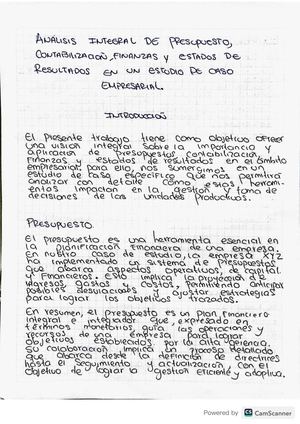 ANÁLISIS INTEGRAL DE PRESUPUESTO,
CONTABILIZACIÓN, FINANZAS Y ESTADOS DE
RESULTADOS EN UN ESTUDIO DE CASO
EMPRESARIAL.
INTRODUCCIÓN
El presente trabajo tiene como objetivo ofrecer
una visión integral sobre la importancia y
aplicación de presupuestos, contabilización,
finanzas y estados de resultados en el ámbito
empresarial, para ello, nos sumergimos en un
estudio de caso específico que nos permitirá
analizar con detalle cómo estos herrami-
entos impactan en la gestión y toma de
decisiones de las unidades productivas.
PRESUPUESTO.
El presupuesto es una herramienta esencial en
la planificación financiera de una empresa.
En nuestro caso de estudio, la empresa XYZ
ha implementado un sistema de presupuestos
que abarca aspectos operativos, de capital
y financieros. Esto implica la proyección de
ingresos, gastos y costos, permitiendo anticipar
posibles desviaciones y ajustar estrategias
para lograr los objetivos trazados.
En resumen, el presupuesto es un plan financiero
integral e integrador que, expresado en
términos monetarios, guía las operaciones y
recursos de una empresa para lograr
objetivos establecidos por la alta gerencia,
su colaboración implica un proceso detallado
que abarca desde la definición de directrices
hasta el seguimiento y actualización, con el
objetivo de lograr la gestión eficiente y adaptiva.
Powered by CS CamScanner